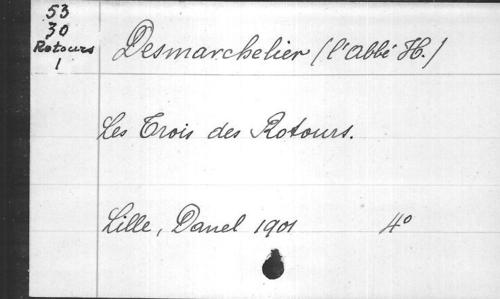 53
30
Rotours
1
Desmarchelier (l'abbé H.)
Les Trois des Rotours.
Lille, Danel 1901 4°